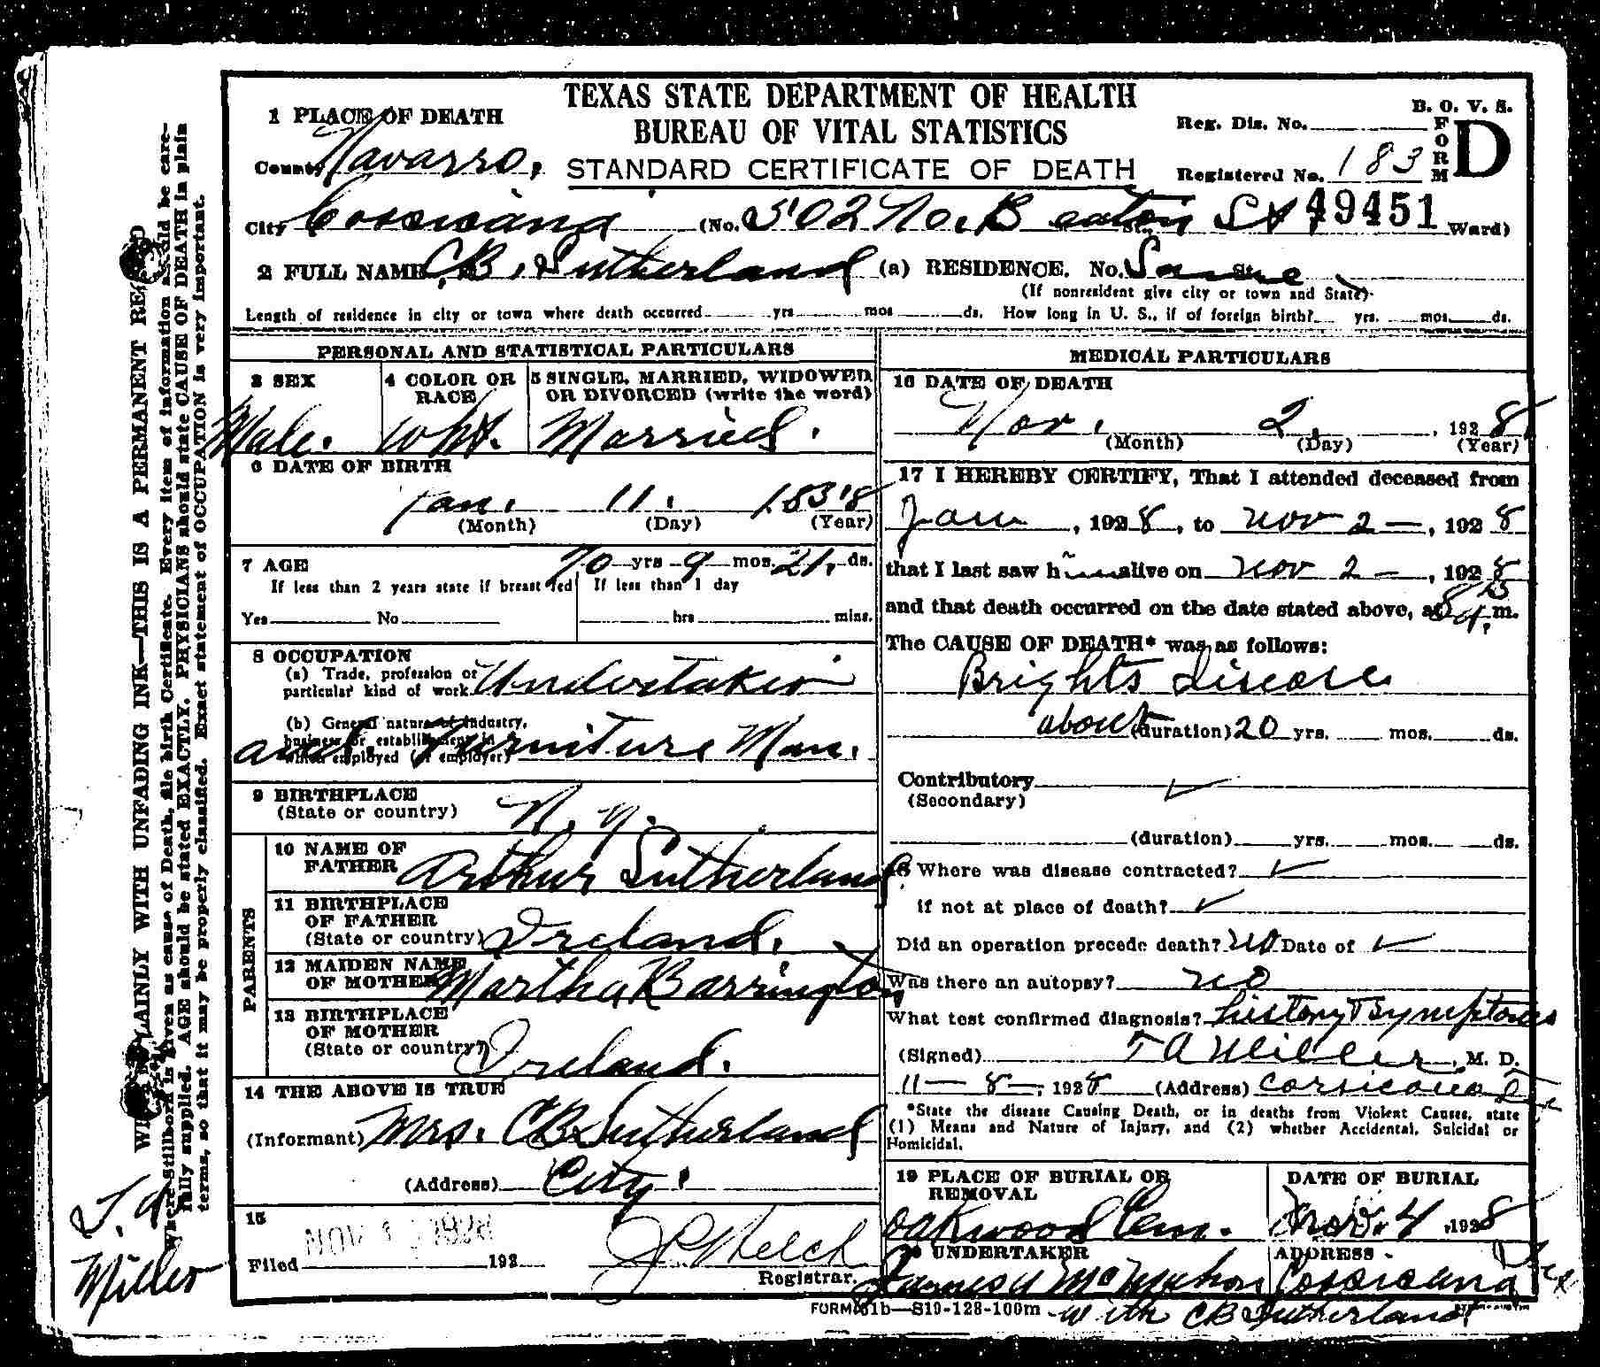 TEXAS STATE DEPARTMENT OF HEALTH
BUREAU OF VITAL STATISTICS
STANDARD CERTIFICATE OF DEATH
B. O. V. S.
FORM D
Reg. Dis. No.
Registered No. 183
49451
1 PLACE OF DEATH
County Navarro.
City Corsicana (No. 502 No. Beaton St. Ward)
2 FULL NAME C.B. Sutherland (a) RESIDENCE. No. Same St.
(If nonresident give city or town and State)
Length of residence in city or town where death occurred yrs mos ds. How long in U. S., if of foreign birth? yrs. mos ds.
PERSONAL AND STATISTICAL PARTICULARS
3 SEX
Male.
4 COLOR OR RACE
Wht.
5 SINGLE, MARRIED, WIDOWED OR DIVORCED (write the word)
Married.
6 DATE OF BIRTH
Jan. 11. 1858
(Month) (Day) (Year)
7 AGE 70 yrs 9 mos 21. ds.
If less than 2 years state if breast fed
Yes No
If less than 1 day
hrs mins.
8 OCCUPATION
(a) Trade, profession or particular kind of work Undertaker
(b) General nature of industry, business or establishment in which employed (or employer)
and Furniture Man.
9 BIRTHPLACE
(State or country) N.Y.
PARENTS
10 NAME OF FATHER Arthur Sutherland
11 BIRTHPLACE OF FATHER
(State or country) Ireland.
12 MAIDEN NAME OF MOTHER Martha Barrington
13 BIRTHPLACE OF MOTHER
(State or country) Ireland.
14 THE ABOVE IS TRUE
(Informant) Mrs. C.B. Sutherland
(Address) City.
15
Filed NOV 192
J P Welch
Registrar.
MEDICAL PARTICULARS
16 DATE OF DEATH
Nov. 2. , 1928
(Month) (Day) (Year)
17 I HEREBY CERTIFY, That I attended deceased from
Jan , 1928, to Nov 2 - , 1928
that I last saw him alive on Nov 2 - , 1928
and that death occurred on the date stated above, at m.
The CAUSE OF DEATH* was as follows:
Brights Disease
about (duration) 20 yrs. mos. ds.
Contributory
(Secondary)
(duration) yrs. mos. ds.
18 Where was disease contracted?
if not at place of death?
Did an operation precede death? no Date of
Was there an autopsy? no
What test confirmed diagnosis? history & symptoms
(Signed) T A Miller, M. D.
11 - 8 -, 1928 (Address) Corsicana Tex
*State the disease Causing Death, or in deaths from Violent Causes, state
(1) Means and Nature of Injury, and (2) whether Accidental, Suicidal or
Homicidal.
19 PLACE OF BURIAL OR REMOVAL
Oakwood Cem.
DATE OF BURIAL
Nov. 4, 1928
20 UNDERTAKER
James A McMahon
ADDRESS
Corsicana Tex
with CB Sutherland
FORM 51b—S19-128-100m
WRITE PLAINLY WITH UNFADING INK—THIS IS A PERMANENT RECORD
Where Stillborn is given as cause of Death, file birth Certificate. Every item of information should be care-
fully supplied. AGE should be stated EXACTLY. PHYSICIANS should state CAUSE OF DEATH in plain
terms, so that it may be properly classified. Exact statement of OCCUPATION is very important.
T. A.
Miller